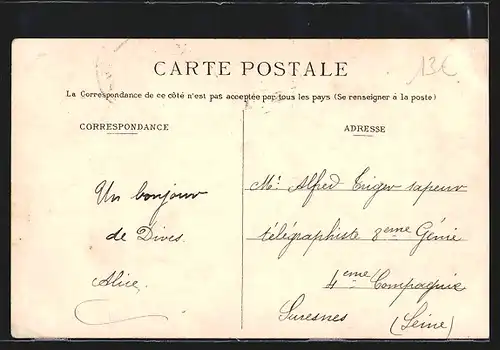 13€
CARTE POSTALE
La Correspondance de ce côté n'est pas acceptée par tous les pays (Se renseigner à la poste)
CORRESPONDANCE
ADRESSE
Un bonjour
de Dives.
Alice.
Mr. Alfred Triger sapeur
télégraphiste 8eme Génie
4eme Compagnie
Suresnes
(Seine)